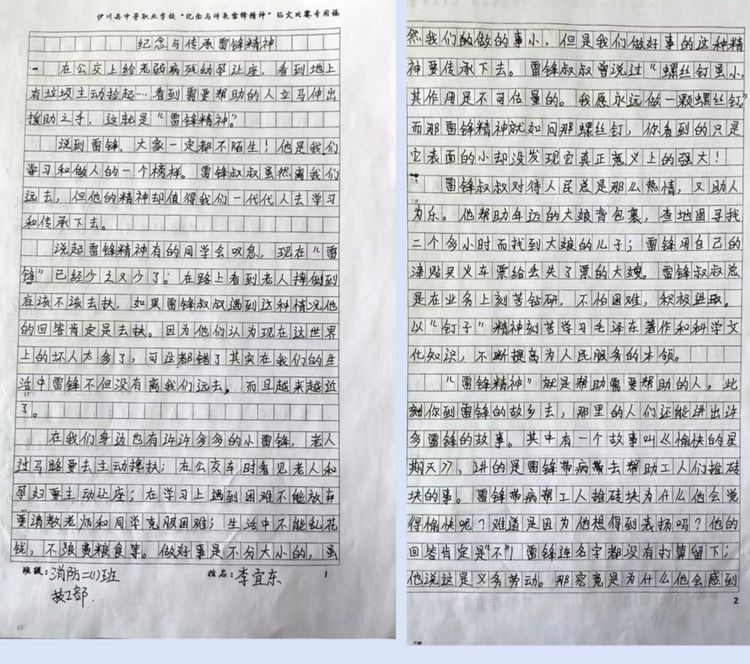 伊川县中等职业学校“纪念与传承雷锋精神”征文比赛专用稿
纪念与传承雷锋精神
在公交上给老弱病残幼孕让座,看到地上
有垃圾主动捡起…看到需要帮助的人立马伸出
援助之手,这就是“雷锋精神”。
说到雷锋,大家一定都不陌生!他是我们
学习和做人的一个榜样。雷锋叔叔虽然离我们
远去,但他的精神却值得我们一代代人去学习
和传承下去。
说起雷锋精神有的同学会叹息,现在“雷
锋”已经少之又少了;在路上看到老人摔倒到
底该不该去扶,如果雷锋叔叔遇到这种情况他
的回答肯定是去扶。因为他们认为现在这世界
上的坏人太多了,可这都错了其实在我们的生
活中雷锋不但没有离我们远去,而且越来越近
了。
在我们身边也有许许多多的小雷锋,老人
过马路要去主动搀扶;在公交车时看见老人和
孕妇要主动让座;在学习上遇到困难不能放弃
要请教老师和同学克服困难;生活中不能乱花
钱,不浪费粮食等。做好事是不分大小的,虽
班级:消防二(1)班 姓名:李宜东 1
技工部.
然我们做的事小,但是我们做好事的这种精
神要传承下去。雷锋叔叔曾说过“螺丝钉虽小,
其作用是不可估量的。我愿永远做一颗螺丝钉”
而那雷锋精神就如同那螺丝钉,你看到的只是
它表面的小却没发现它真正意义上的强大!
雷锋叔叔对待人民总是那么热情,又助人
为乐。他帮助年迈的大娘背包裹,查地图寻找
二个多小时而找到大娘的儿子;雷锋用自己的
津贴买火车票给丢失了票的大嫂。雷锋叔叔总
是在业务上刻苦钻研,不怕困难,积极进取。
以“钉子”精神刻苦学习毛泽东著作和科学文
化知识,不断提高为人民服务的本领。
“雷锋精神”就是帮助需要帮助的人。此
刻你到雷锋的故乡去,那里的人们还能讲出许
多雷锋的故事。其中有一个故事叫《愉快的星
期天》,讲的是雷锋带病带去帮助工人们推砖
块的事。雷锋带病帮工人推砖块为什么他会觉
得愉快呢?难道是因为他想得到表扬吗?他的
回答肯定是“不”!雷锋连名字都没有打算留下;
他说这是义务劳动。那究竟是为什么他会感到
2